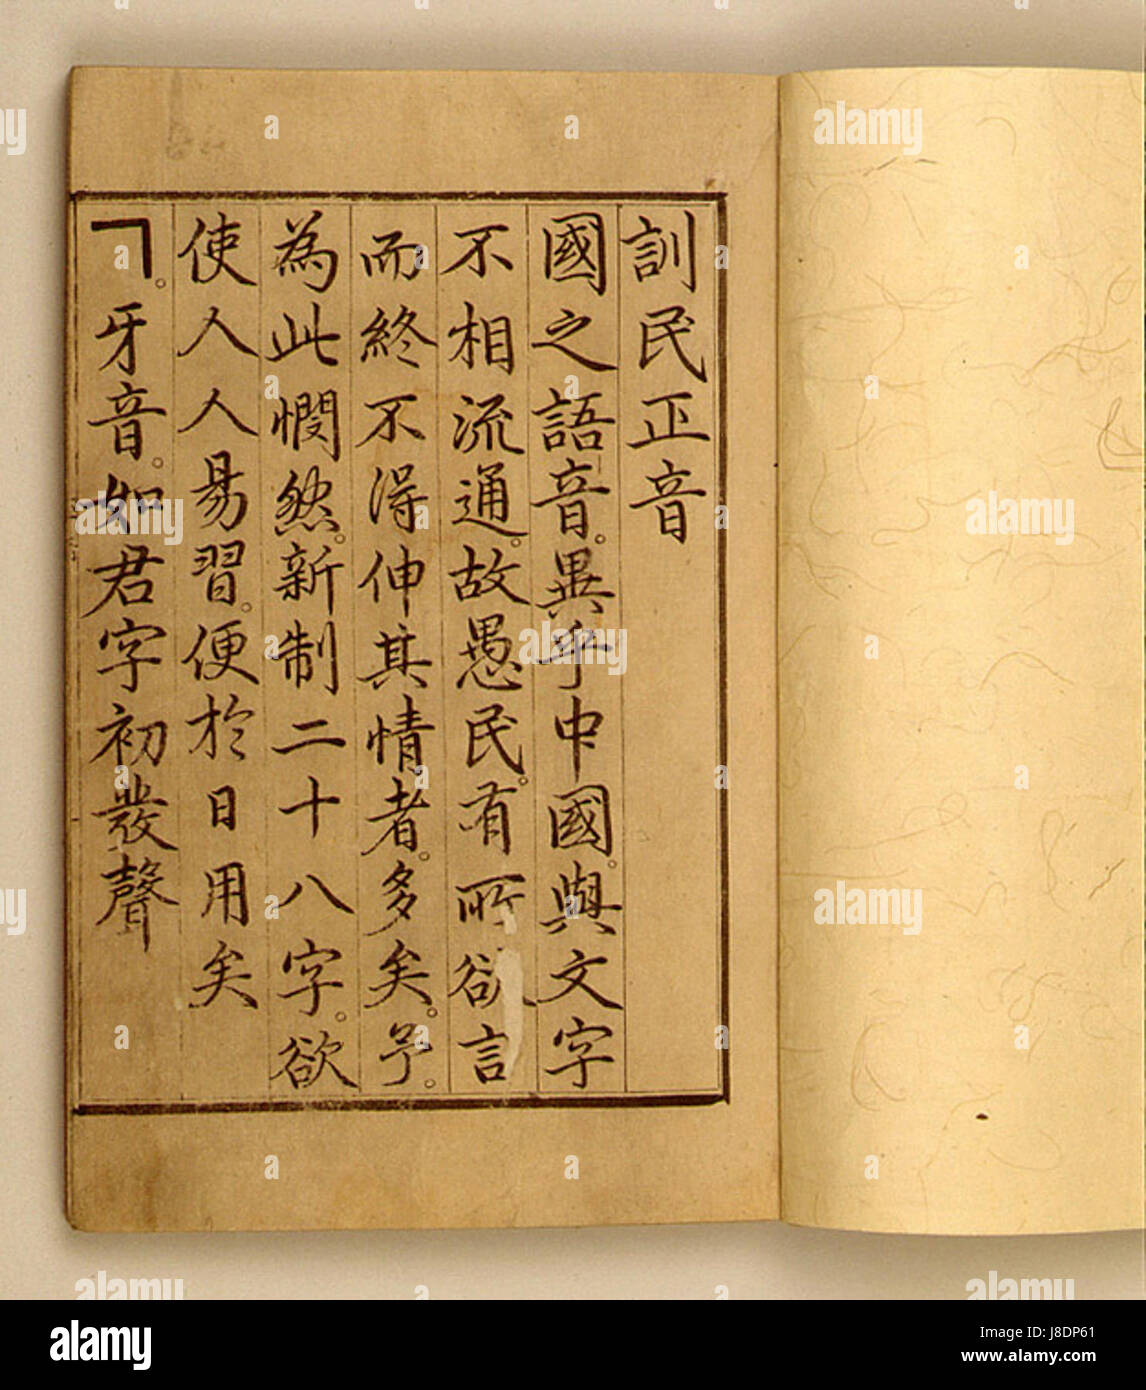 訓民正音
國之語音。異乎中國。與文字
不相流通。故愚民。有所欲言
而終不得伸其情者。多矣。予。
為此憫然。新制二十八字。欲
使人人易習。便於日用矣
ㄱ。牙音。如君字初發聲
alamy
Image ID: J8DP61
www.alamy.com